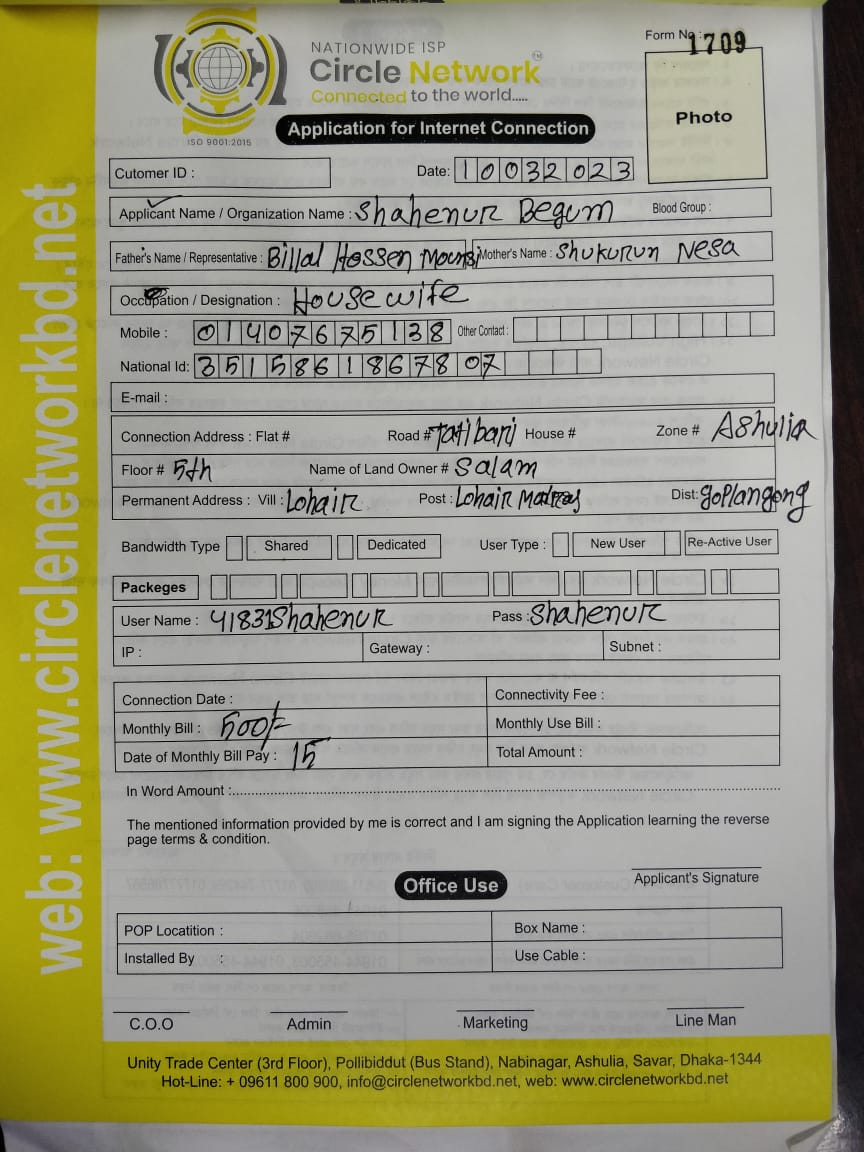 Form No : 1709
NATIONWIDE ISP
Circle Network TM
Connected to the world.....
ISO 9001:2015
Photo
Application for Internet Connection
Cutomer ID :
Date: 10032023
Applicant Name / Organization Name : Shahenur Begum Blood Group :
Father's Name / Representative : Billal Hossen Mounsi Mother's Name : Shukurun Nesa
Occupation / Designation : Housewife
Mobile : 01407675138 Other Contact :
National Id: 3515861867807
E-mail :
Connection Address : Flat # Road # Tatibari House # Zone # Ashulia
Floor # 5th Name of Land Owner # Salam
Permanent Address : Vill : Lohair Post : Lohair Dist: Goplangong
Bandwidth Type Shared Dedicated User Type : New User Re-Active User
Packeges
User Name : 41831Shahenur Pass : Shahenur
IP : Gateway : Subnet :
Connection Date : Connectivity Fee :
Monthly Bill : 500/- Monthly Use Bill :
Date of Monthly Bill Pay : 15 Total Amount :
In Word Amount :
The mentioned information provided by me is correct and I am signing the Application learning the reverse
page terms & condition.
Applicant's Signature
Office Use
POP Locatition : Box Name :
Installed By : Use Cable :
C.O.O Admin Marketing Line Man
Unity Trade Center (3rd Floor), Pollibiddut (Bus Stand), Nabinagar, Ashulia, Savar, Dhaka-1344
Hot-Line: + 09611 800 900, info@circlenetworkbd.net, web: www.circlenetworkbd.net
web: www.circlenetworkbd.net